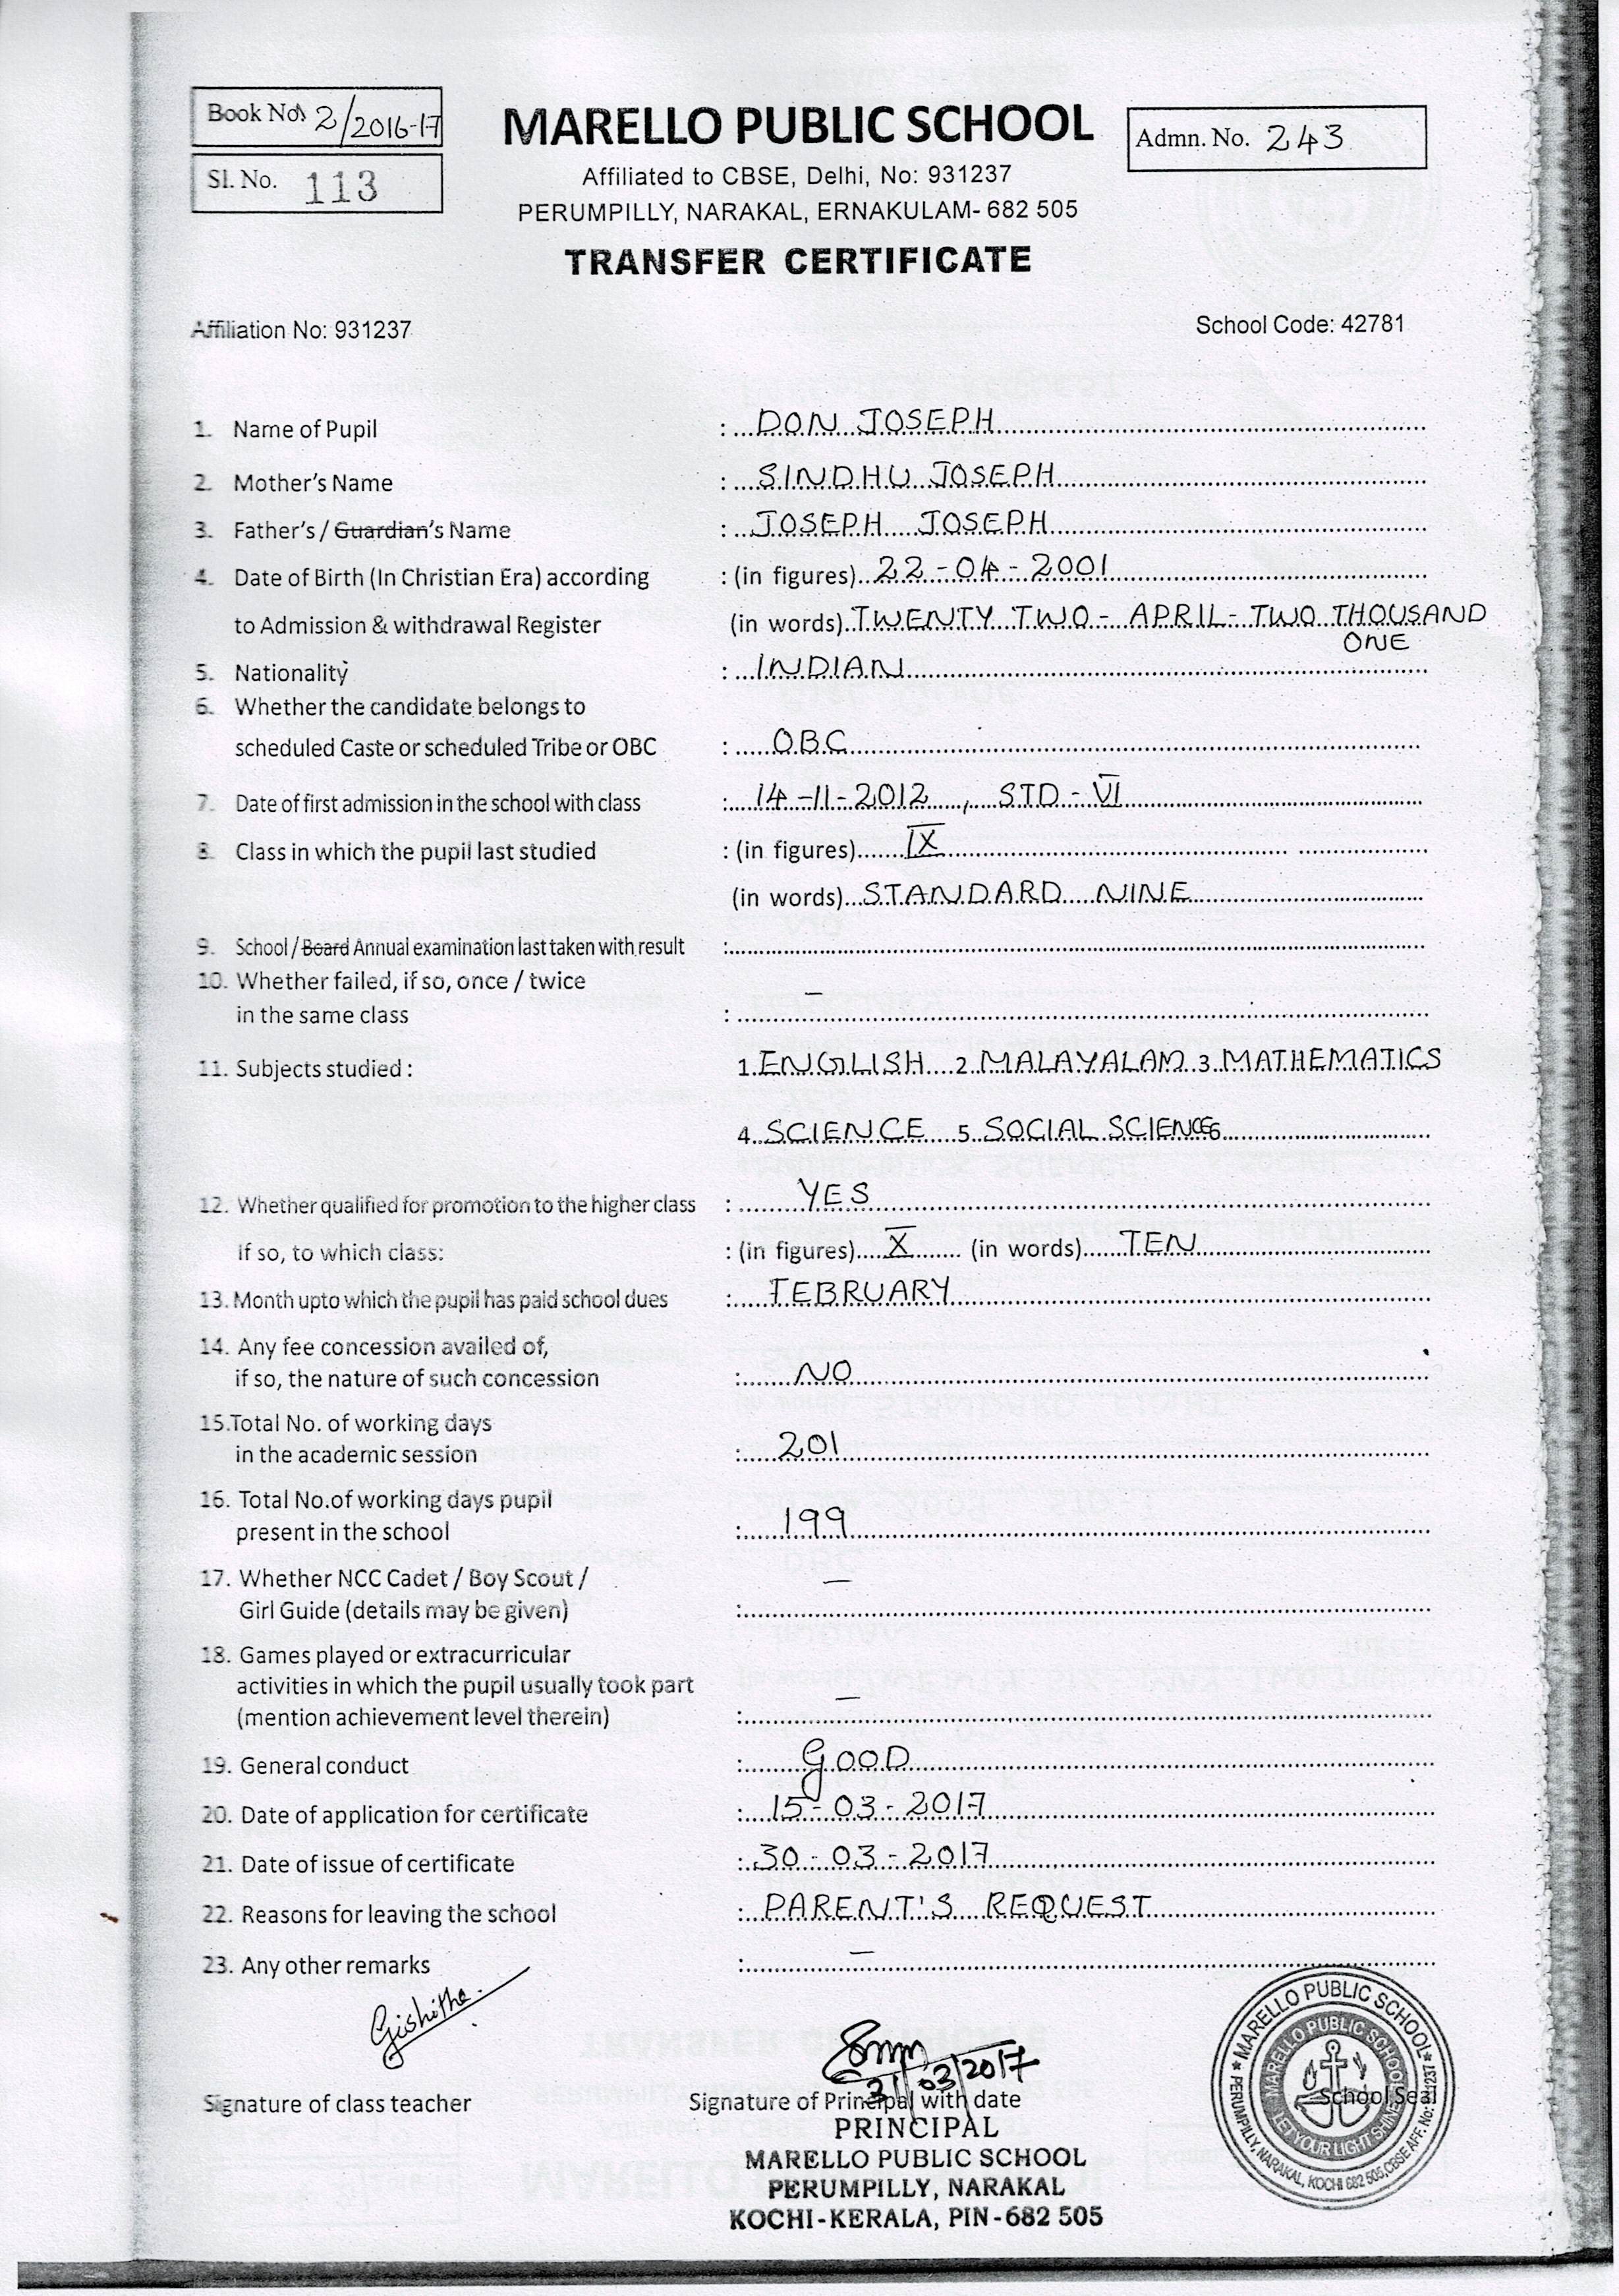 Book No. 2/2016-17
MARELLO PUBLIC SCHOOL
Admn. No. 243
Sl. No. 113
Affiliated to CBSE, Delhi, No: 931237
PERUMPILLY, NARAKAL, ERNAKULAM- 682 505
TRANSFER CERTIFICATE
Affiliation No: 931237 School Code: 42781
1. Name of Pupil : DON JOSEPH
2. Mother's Name : SINDHU JOSEPH
3. Father's / Guardian's Name : JOSEPH JOSEPH
4. Date of Birth (In Christian Era) according : (in figures) 22-04-2001
to Admission & withdrawal Register (in words) TWENTY TWO - APRIL - TWO THOUSAND
ONE
5. Nationality : INDIAN
6. Whether the candidate belongs to
scheduled Caste or scheduled Tribe or OBC : OBC
7. Date of first admission in the school with class : 14-11-2012, STD - VI
8. Class in which the pupil last studied : (in figures) IX
(in words) STANDARD NINE
9. School / Board Annual examination last taken with result :
10. Whether failed, if so, once / twice –
in the same class :
11. Subjects studied : 1. ENGLISH 2. MALAYALAM 3. MATHEMATICS
4. SCIENCE 5. SOCIAL SCIENCE 6.
12. Whether qualified for promotion to the higher class : YES
if so, to which class: : (in figures) X (in words) TEN
13. Month upto which the pupil has paid school dues : FEBRUARY
14. Any fee concession availed of,
if so, the nature of such concession : NO
15.Total No. of working days
in the academic session : 201
16. Total No.of working days pupil
present in the school : 199
17. Whether NCC Cadet / Boy Scout / –
Girl Guide (details may be given) :
18. Games played or extracurricular
activities in which the pupil usually took part –
(mention achievement level therein) :
19. General conduct : GOOD
20. Date of application for certificate : 15-03-2017
21. Date of issue of certificate : 30-03-2017
22. Reasons for leaving the school : PARENT'S REQUEST
23. Any other remarks : –
Gishitha.
31/03/2017
Signature of class teacher Signature of Principal with date School Seal
PRINCIPAL
MARELLO PUBLIC SCHOOL
PERUMPILLY, NARAKAL
KOCHI-KERALA, PIN-682 505
* MARELLO PUBLIC SCHOOL *
PERUMPILLY, NARAKAL, KOCHI 682 505, CBSE AFF. No: 931237
MARELLO PUBLIC SCHOOL
LET YOUR LIGHT SHINE